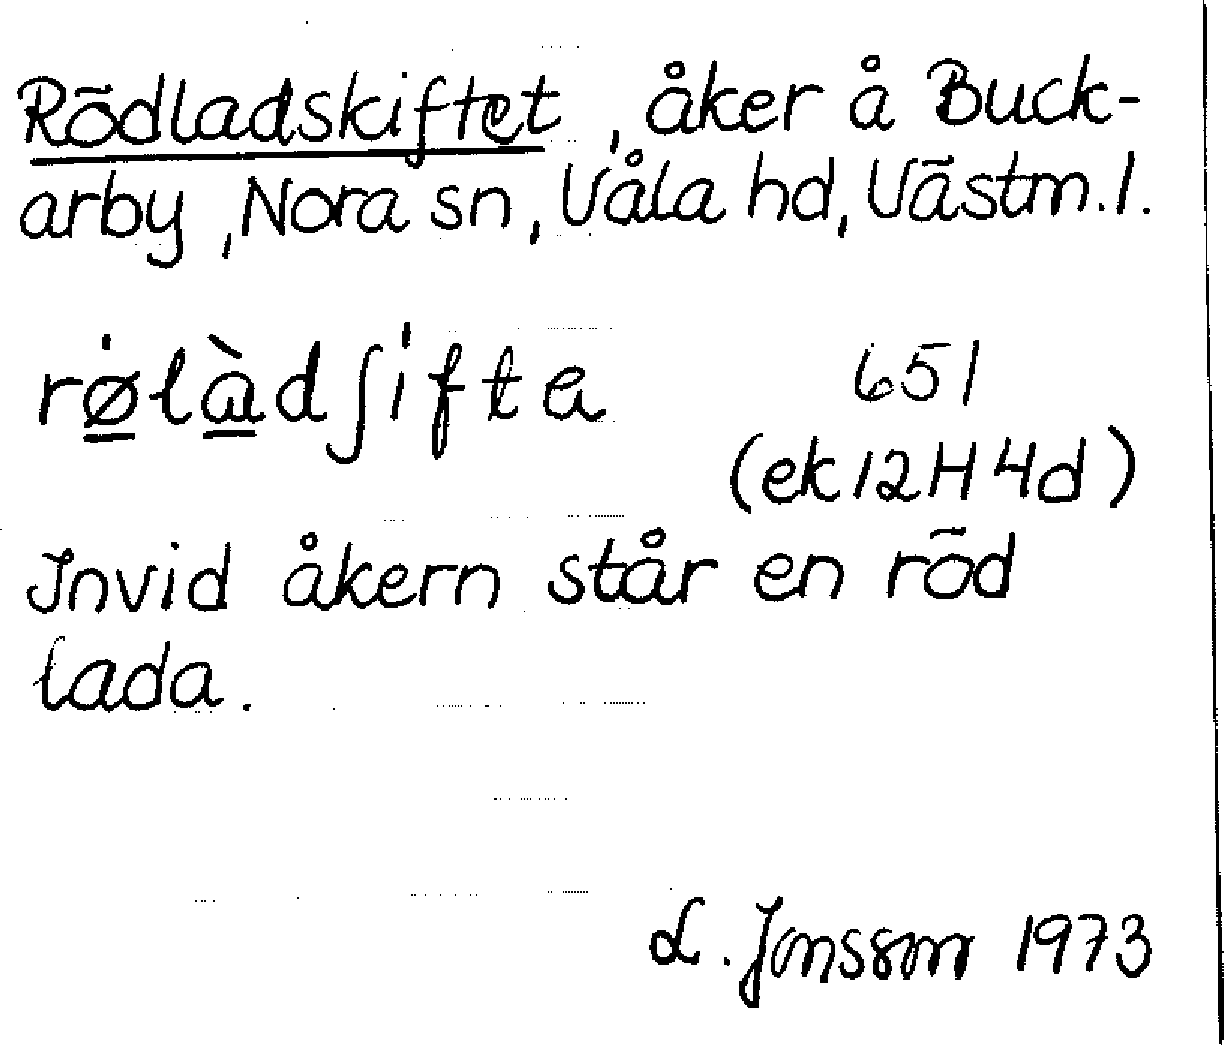 Rödladskiftet, åker å Buck-
arby, Nora sn, Våla hd, Västm. l.
rø̲làdʃifta 651
(ek 12H 4d)
Invid åkern står en röd
lada.
L. Jonsson 1973